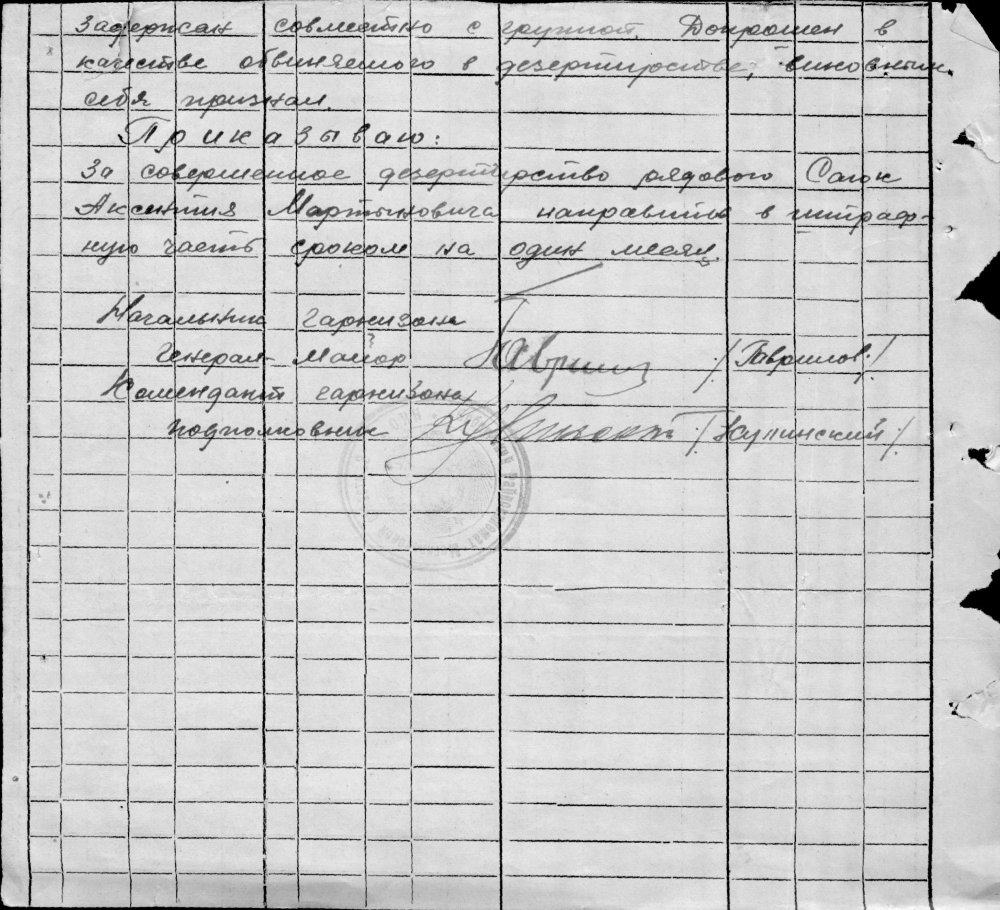 задержан совместно с группой. Допрошен в
качестве обвиняемого в дезертирстве, виновным
себя признал.
Приказываю:
За совершенное дезертирство рядового Сагок
Аксентия Мартыновича направить в штраф-
ную часть сроком на один месяц.
Начальник гарнизона
генерал-майор /Гаврилов/
Комендант гарнизона
подполковник /Купинский/